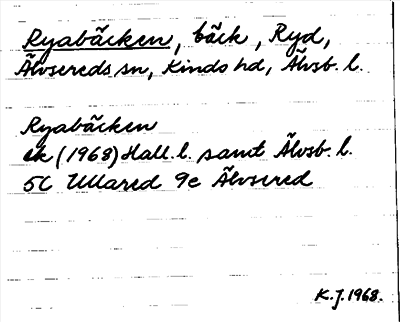 Ryabäcken, bäck, Ryd,
Älvsereds sn, Kinds hd, Älvsb. l.
Ryabäcken
ek (1968) Hall. l. samt Älvsb. l.
5C Ullared 9e Älvsered
K.J. 1968.